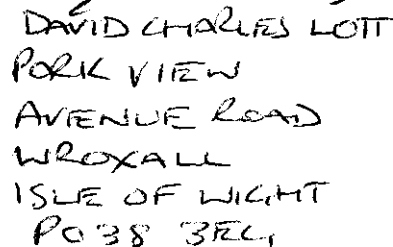 DAVID CHARLES LOTT
PORK VIEW
AVENUE ROAD
WROXALL
ISLE OF WIGHT
PO38